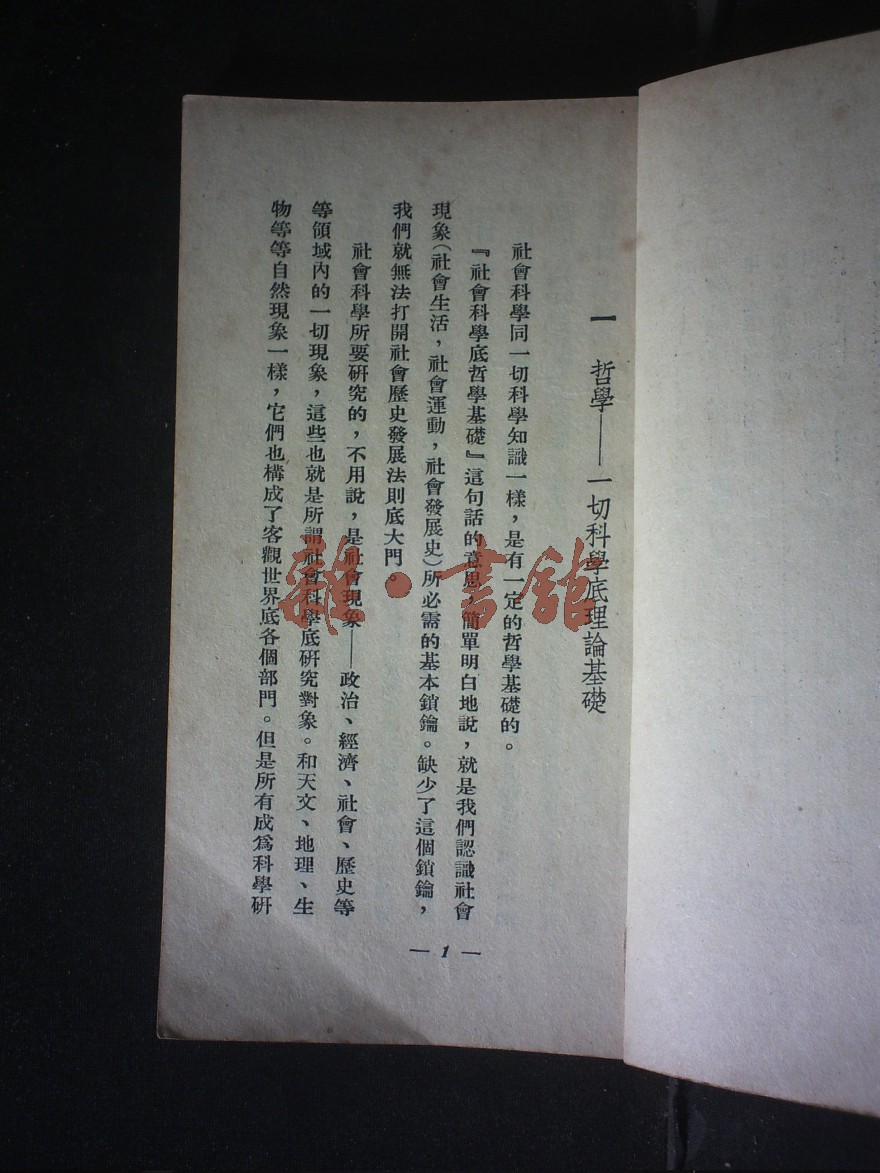 一 哲學——一切科學底理論基礎
社會科學同一切科學知識一樣，是有一定的哲學基礎的。
『社會科學底哲學基礎』這句話的意思，簡單明白地說，就是我們認識社會
現象（社會生活，社會運動，社會發展史）所必需的基本鎖鑰。缺少了這個鎖鑰，
我們就無法打開社會歷史發展法則底大門。
社會科學所要研究的，不用說，是社會現象——政治、經濟、社會、歷史等
等領域內的一切現象，這些也就是所謂社會科學底研究對象。和天文、地理、生
物等等自然現象一樣，它們也構成了客觀世界底各個部門。但是所有成爲科學研
— 1 —
雜·書館